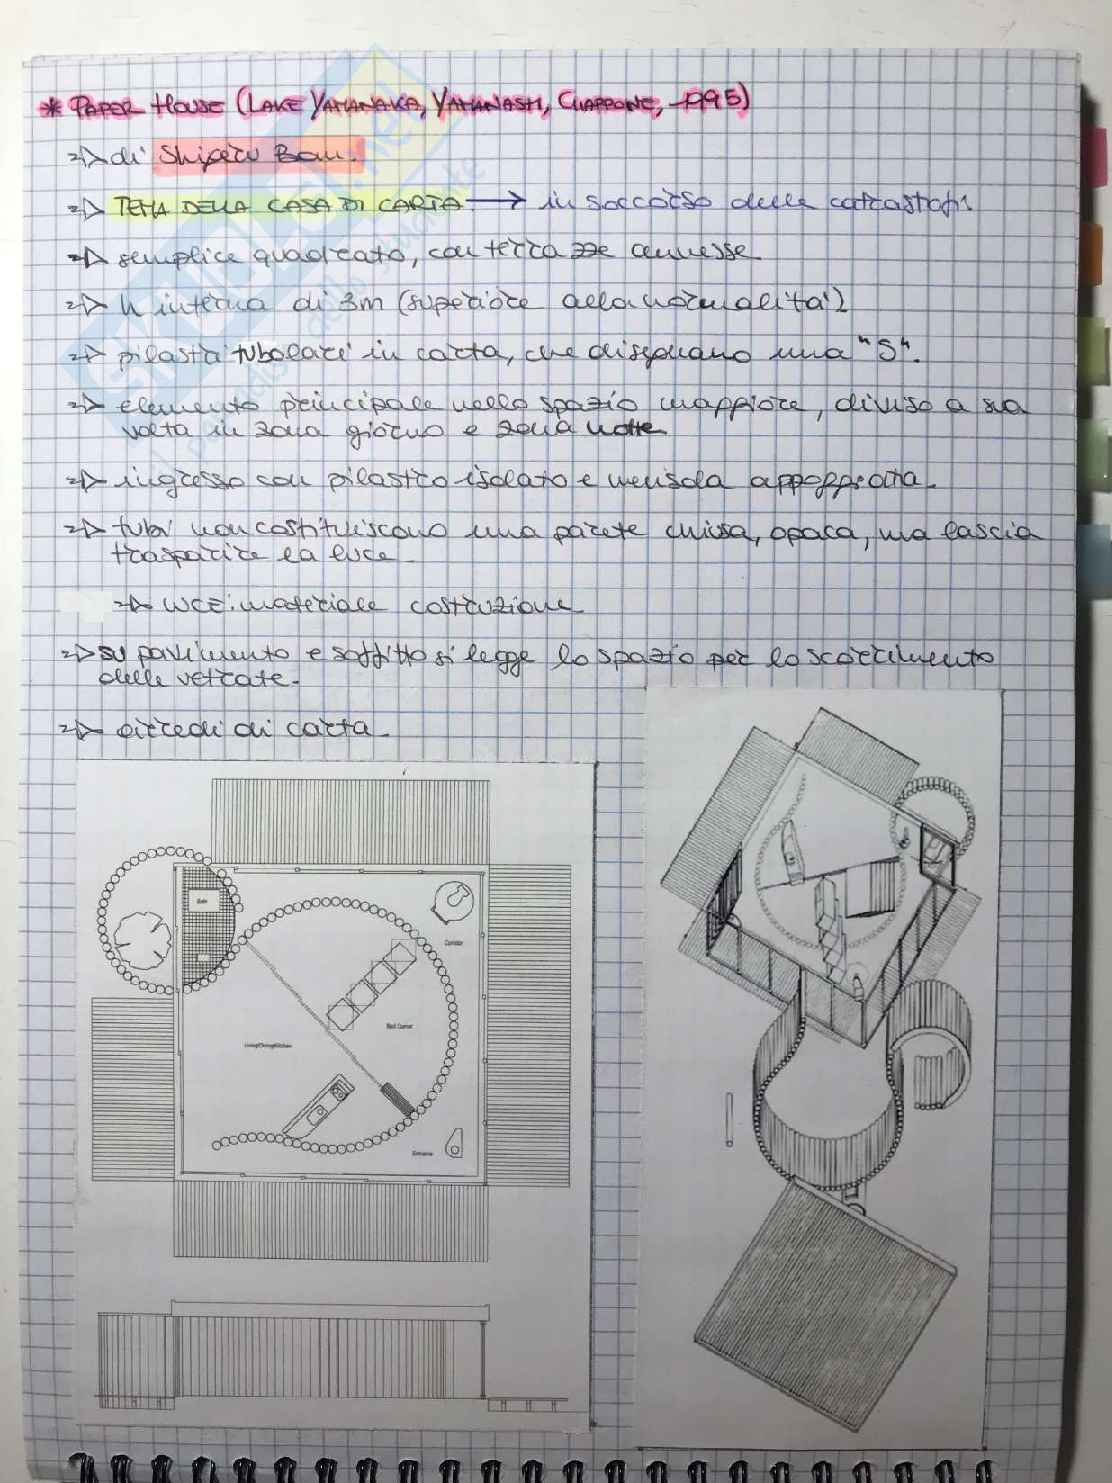 * PAPER HOUSE (LAKE YAMANAKA, YAMANASH, GIAPPONE, 1995)
=> di Shigeru Ban.
=> TEMA DELLA CASA DI CARTA → in soccorso delle catastrofi.
=> semplice quadrato, con terrazze connesse
=> h interna di 3m (superiore alla normalità)
=> pilastri tubolari in carta, che disegnano una "S".
=> elemento principale nello spazio maggiore, diviso a sua
volta in zona giorno e zona notte
=> ingresso con pilastro isolato e mensola appoggiata.
=> tubi non costituiscono una parete chiusa, opaca, ma lascia
trasparire la luce
=> LUCE: materiale costruzione
=> su pavimento e soffitto si legge lo spazio per lo scorrimento
delle vetrate.
=> arredi di carta
Bath
Corridor
Bed Corner
Living/Dining/Kitchen
Entrance